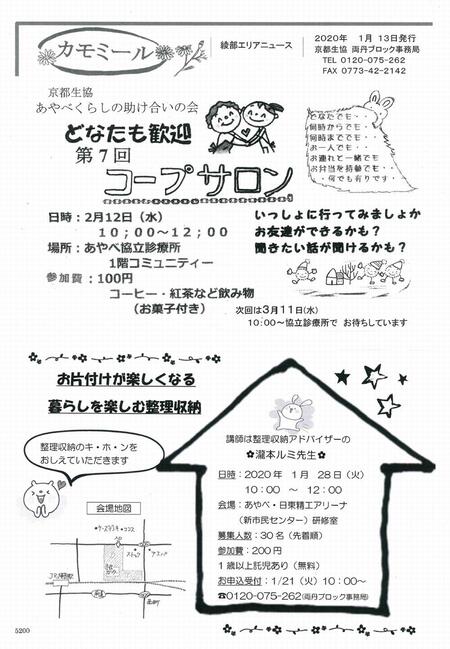 カモミール
綾部エリアニュース
2020年 1月 13日発行
京都生協 両丹ブロック事務局
TEL 0120-075-262
FAX 0773-42-2142
京都生協
あやべくらしの助け合いの会
どなたも歓迎
第7回
コープサロン
どなたでも・・
何時からでも・・
何時まででも・・
お一人でも・・
お連れと一緒でも・・
お弁当を持参でも・・・
・何でも有りです・
日時：2月12日（水）
10；00～12；00
場所：あやべ協立診療所
1階コミュニティー
参加費：100円
コーヒー・紅茶など飲み物
（お菓子付き）
いっしょに行ってみましょか
お友達ができるかも？
聞きたい話が聞けるかも？
次回は3月11日(水)
10：00～協立診療所で お待ちしています
お片付けが楽しくなる
暮らしを楽しむ整理収納
整理収納のキ・ホ・ンを
おしえていただきます
会場地図
講師は整理収納アドバイザーの
✿瀧本ルミ先生✿
日時：2020年 1月 28日（火）
10：00 ～ 12：00
会場：あやべ・日東精工アリーナ
（新市民センター）研修室
募集人数：30名（先着順）
参加費：200円
1歳以上託児あり（無料）
お申込受付：1/21（火）10：00～
☎0120-075-262(両丹ブロック事務局)
5200